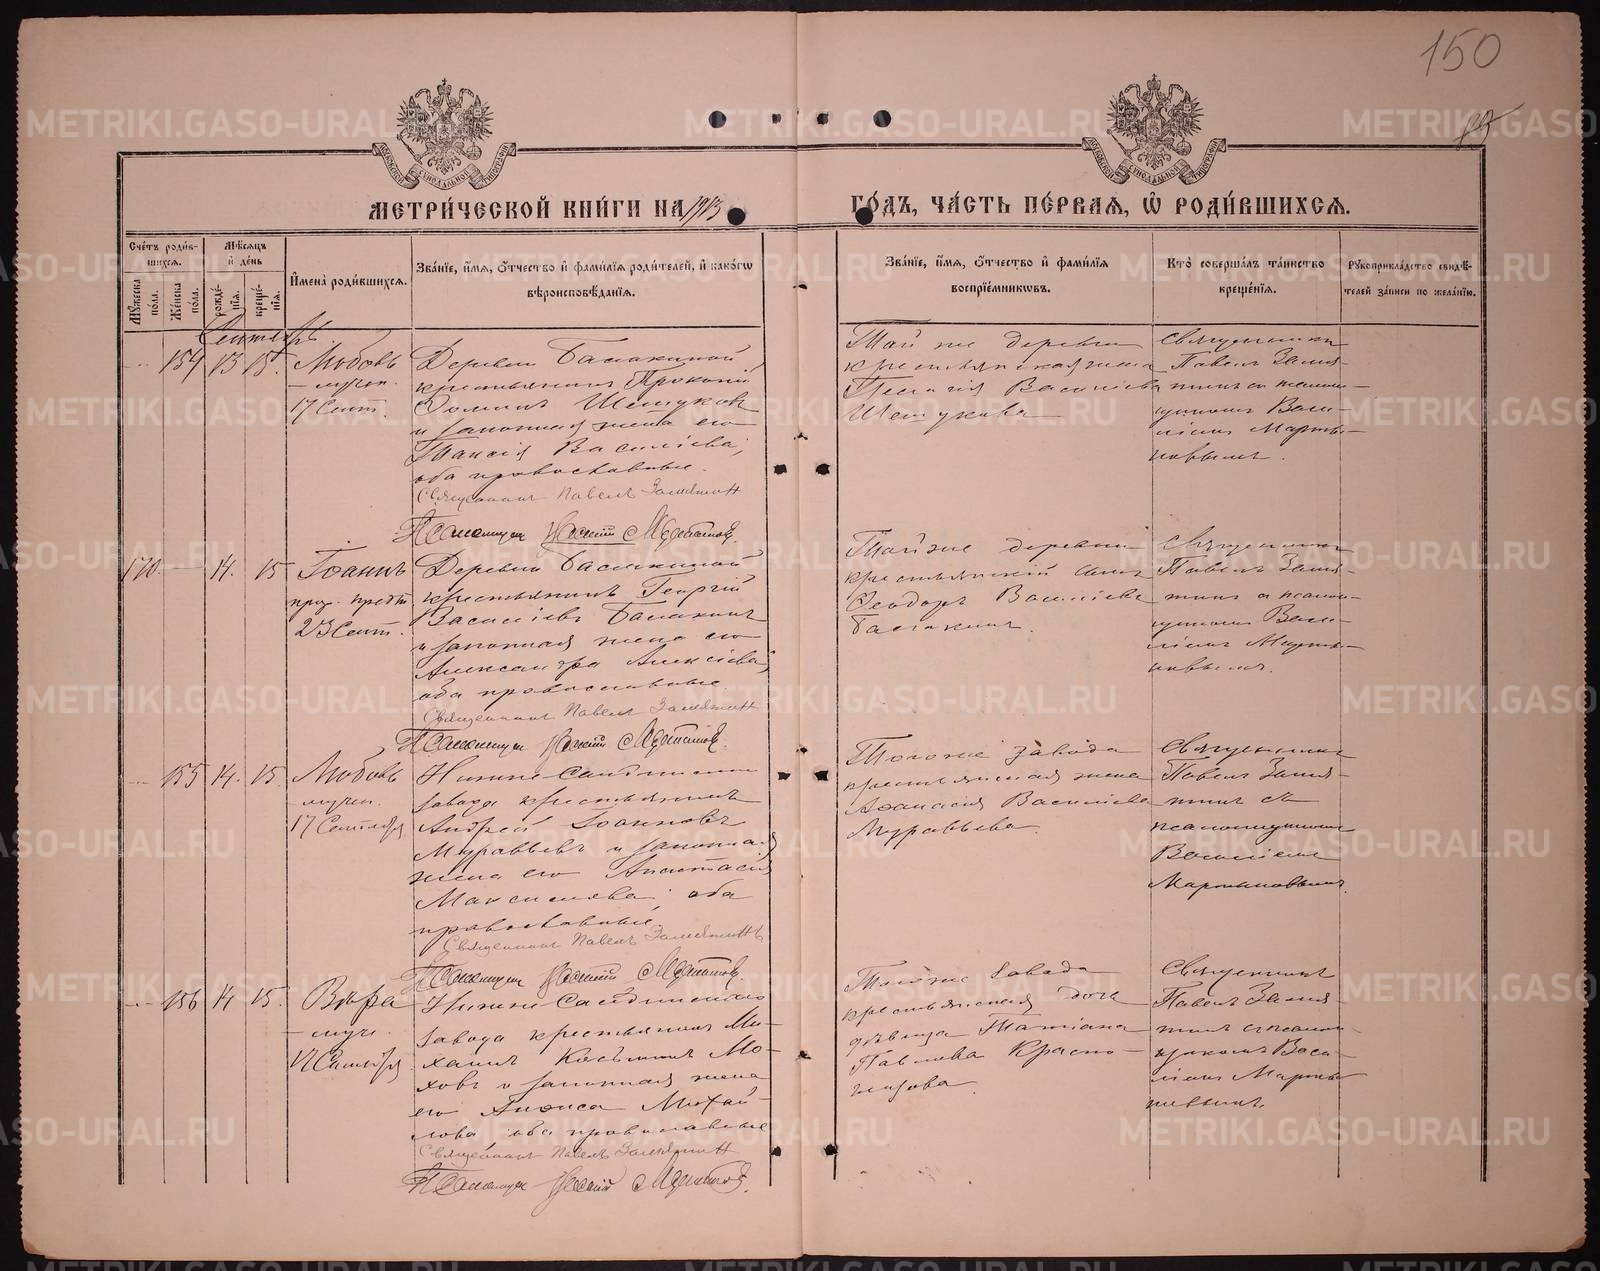 150
МЕТРИ́ЧЕСКОЙ КНИ́ГИ НА 1913 ГО́ДЪ, ЧА́СТЬ ПЕ́РВАЯ, Ѡ҆ РОДИ́ВШИХСЯ.
Сче́тъ роди́в-
шихся.
Мꙋ́жеска по́ла.
Же́нска по́ла.
Мѣ́сяцъ и҆ де́нь
рожде́-нїя.
креще́-нїя.
И҆мена̀ роди́вшихся.
Зва́нїе, и҆́мя, ѻ҆́тчество и҆ фами́лїя роди́телей, и҆ како́гѡ
вѣроисповѣ́данїя.
Зва́нїе, и҆́мя, ѻ҆́тчество и҆ фами́лїя
воспрїе́мниковъ.
Кто̀ соверша́лъ та́инство
креще́нїя.
Рꙋкоприкла́дство свидѣ́-
телей за́писи по жела́нїю.
Сентябрь
154 13 15. Любовь
мучен.
17 Сент.
Деревни Балакиной
крестьянинъ Прокопій
Шешуковъ
и законная жена его
Таисія Василіева,
оба православные.
Священникъ Павелъ Замятин
Псаломщик
Той же деревни
крестьянская жена
Пелагія Василіева
Шешукова
Священникъ
Павелъ Замя-
тинъ съ псалом-
щикомъ Васи-
ліемъ Марты-
новымъ.
170. 14. 15 Іоаннъ
прор. предт.
23 Сент.
Деревни Балакиной
крестьянинъ Георгій
Василіевъ Балакинъ
и законная жена его
Александра Алексіева,
оба православные.
Священникъ Павелъ Замятин
Псаломщик
Той же деревни
крестьянскій сынъ
Ѳеодоръ Василіевъ
Балакинъ.
Священникъ
Павелъ Замя-
тинъ съ псалом-
щикомъ Васи-
ліемъ Марты-
новымъ.
155 14. 15. Любовь
мучен.
17 Сентября
Нижне-Салдинскаго
завода крестьянинъ
Андрей Іоанновъ
Муравьевъ и законная
жена его Анастасія
Максимова, оба
православные.
Священникъ Павелъ Замятинъ
Псаломщик
Того же завода
крестьянская жена
Аѳанасія Василіева
Муравьева.
Священникъ
Павелъ Замя-
тинъ съ
псаломщикомъ
Василіемъ
Мартыновымъ.
156 14 15. Вѣра
муч.
17 Сентября
Нижне-Салдинскаго
завода крестьянинъ Ми-
хаилъ Косьминъ Мо-
ховъ и законная жена
его Анѳиса Михай-
лова оба православные
Священникъ Павелъ Замятин
Псаломщик
Того же завода
крестьянская дочь
дѣвица Татіана
Павлова Красно-
Священникъ
Павелъ Замя-
тинъ съ псалом-
щикомъ Васи-
ліемъ Марты-
новымъ.
METRIKI.GASO-URAL.RU